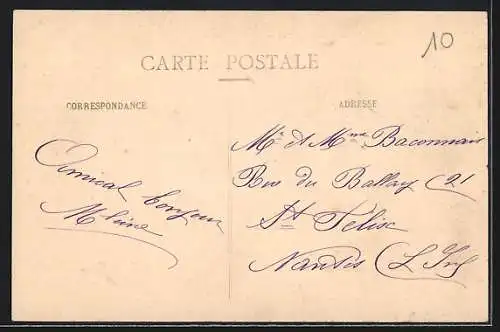 10
CARTE POSTALE
CORRESPONDANCE
Amical bonjour
ADRESSE
Mr et Mme Baconnais
Rue du Ballay 21
St Félix
Nantes (L Inf